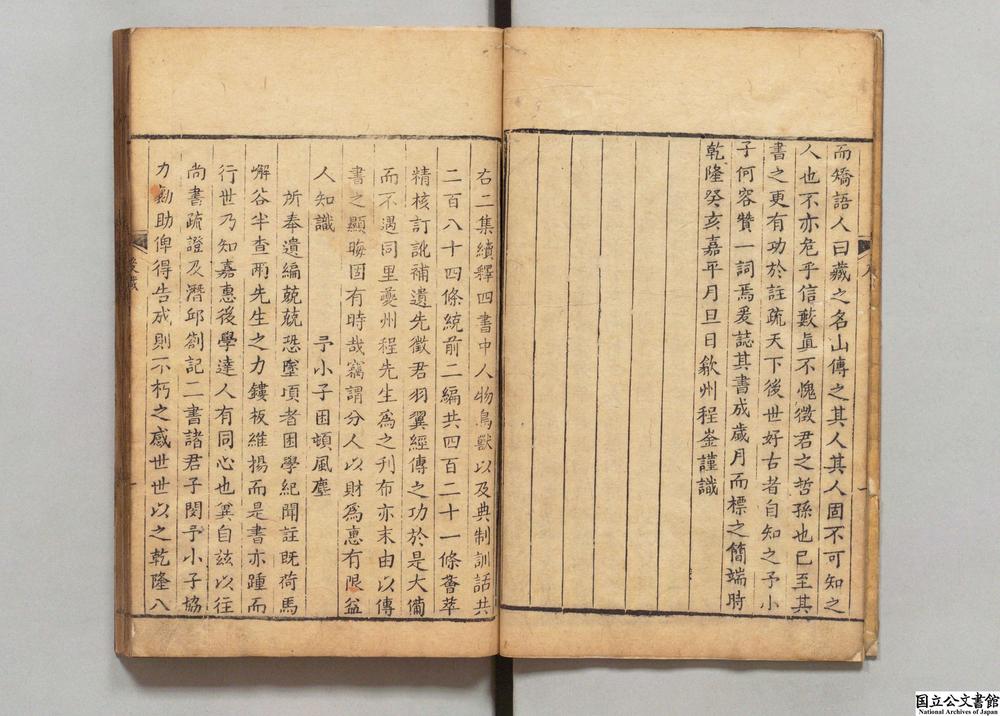 而矯語人曰藏之名山傳之其人其人固不可知之
人也不亦危乎信歟眞不愧徵君之哲孫也已至其
書之更有功於註疏天下後世好古者自知之予小
子何容贊一詞焉爰誌其書成歲月而標之簡端時
乾隆癸亥嘉平月旦日歙州程崟謹識
右二集續釋四書中人物鳥獸以及典制訓詁共
二百八十四條統前二編共四百二十一條薈萃
精核訂訛補遺先徵君羽翼經傳之功於是大備
而不遇同里夔州程先生爲之刊布亦末由以傳
書之顯晦固有時哉竊謂分人以財爲惠有限益
人知識 予小子困頓風塵
所奉遺編兢兢恐墜項者困學紀聞註既荷馬
嶰谷半查兩先生之力鏤板維揚而是書亦踵而
行世乃知嘉惠後學達人有同心也兾自兹以往
尚書疏證及潛邱劄記二書諸君子閔予小子協
力勷助俾得告成則不朽之感世世以之乾隆八
八
後識
一
国立公文書館
National Archives of Japan